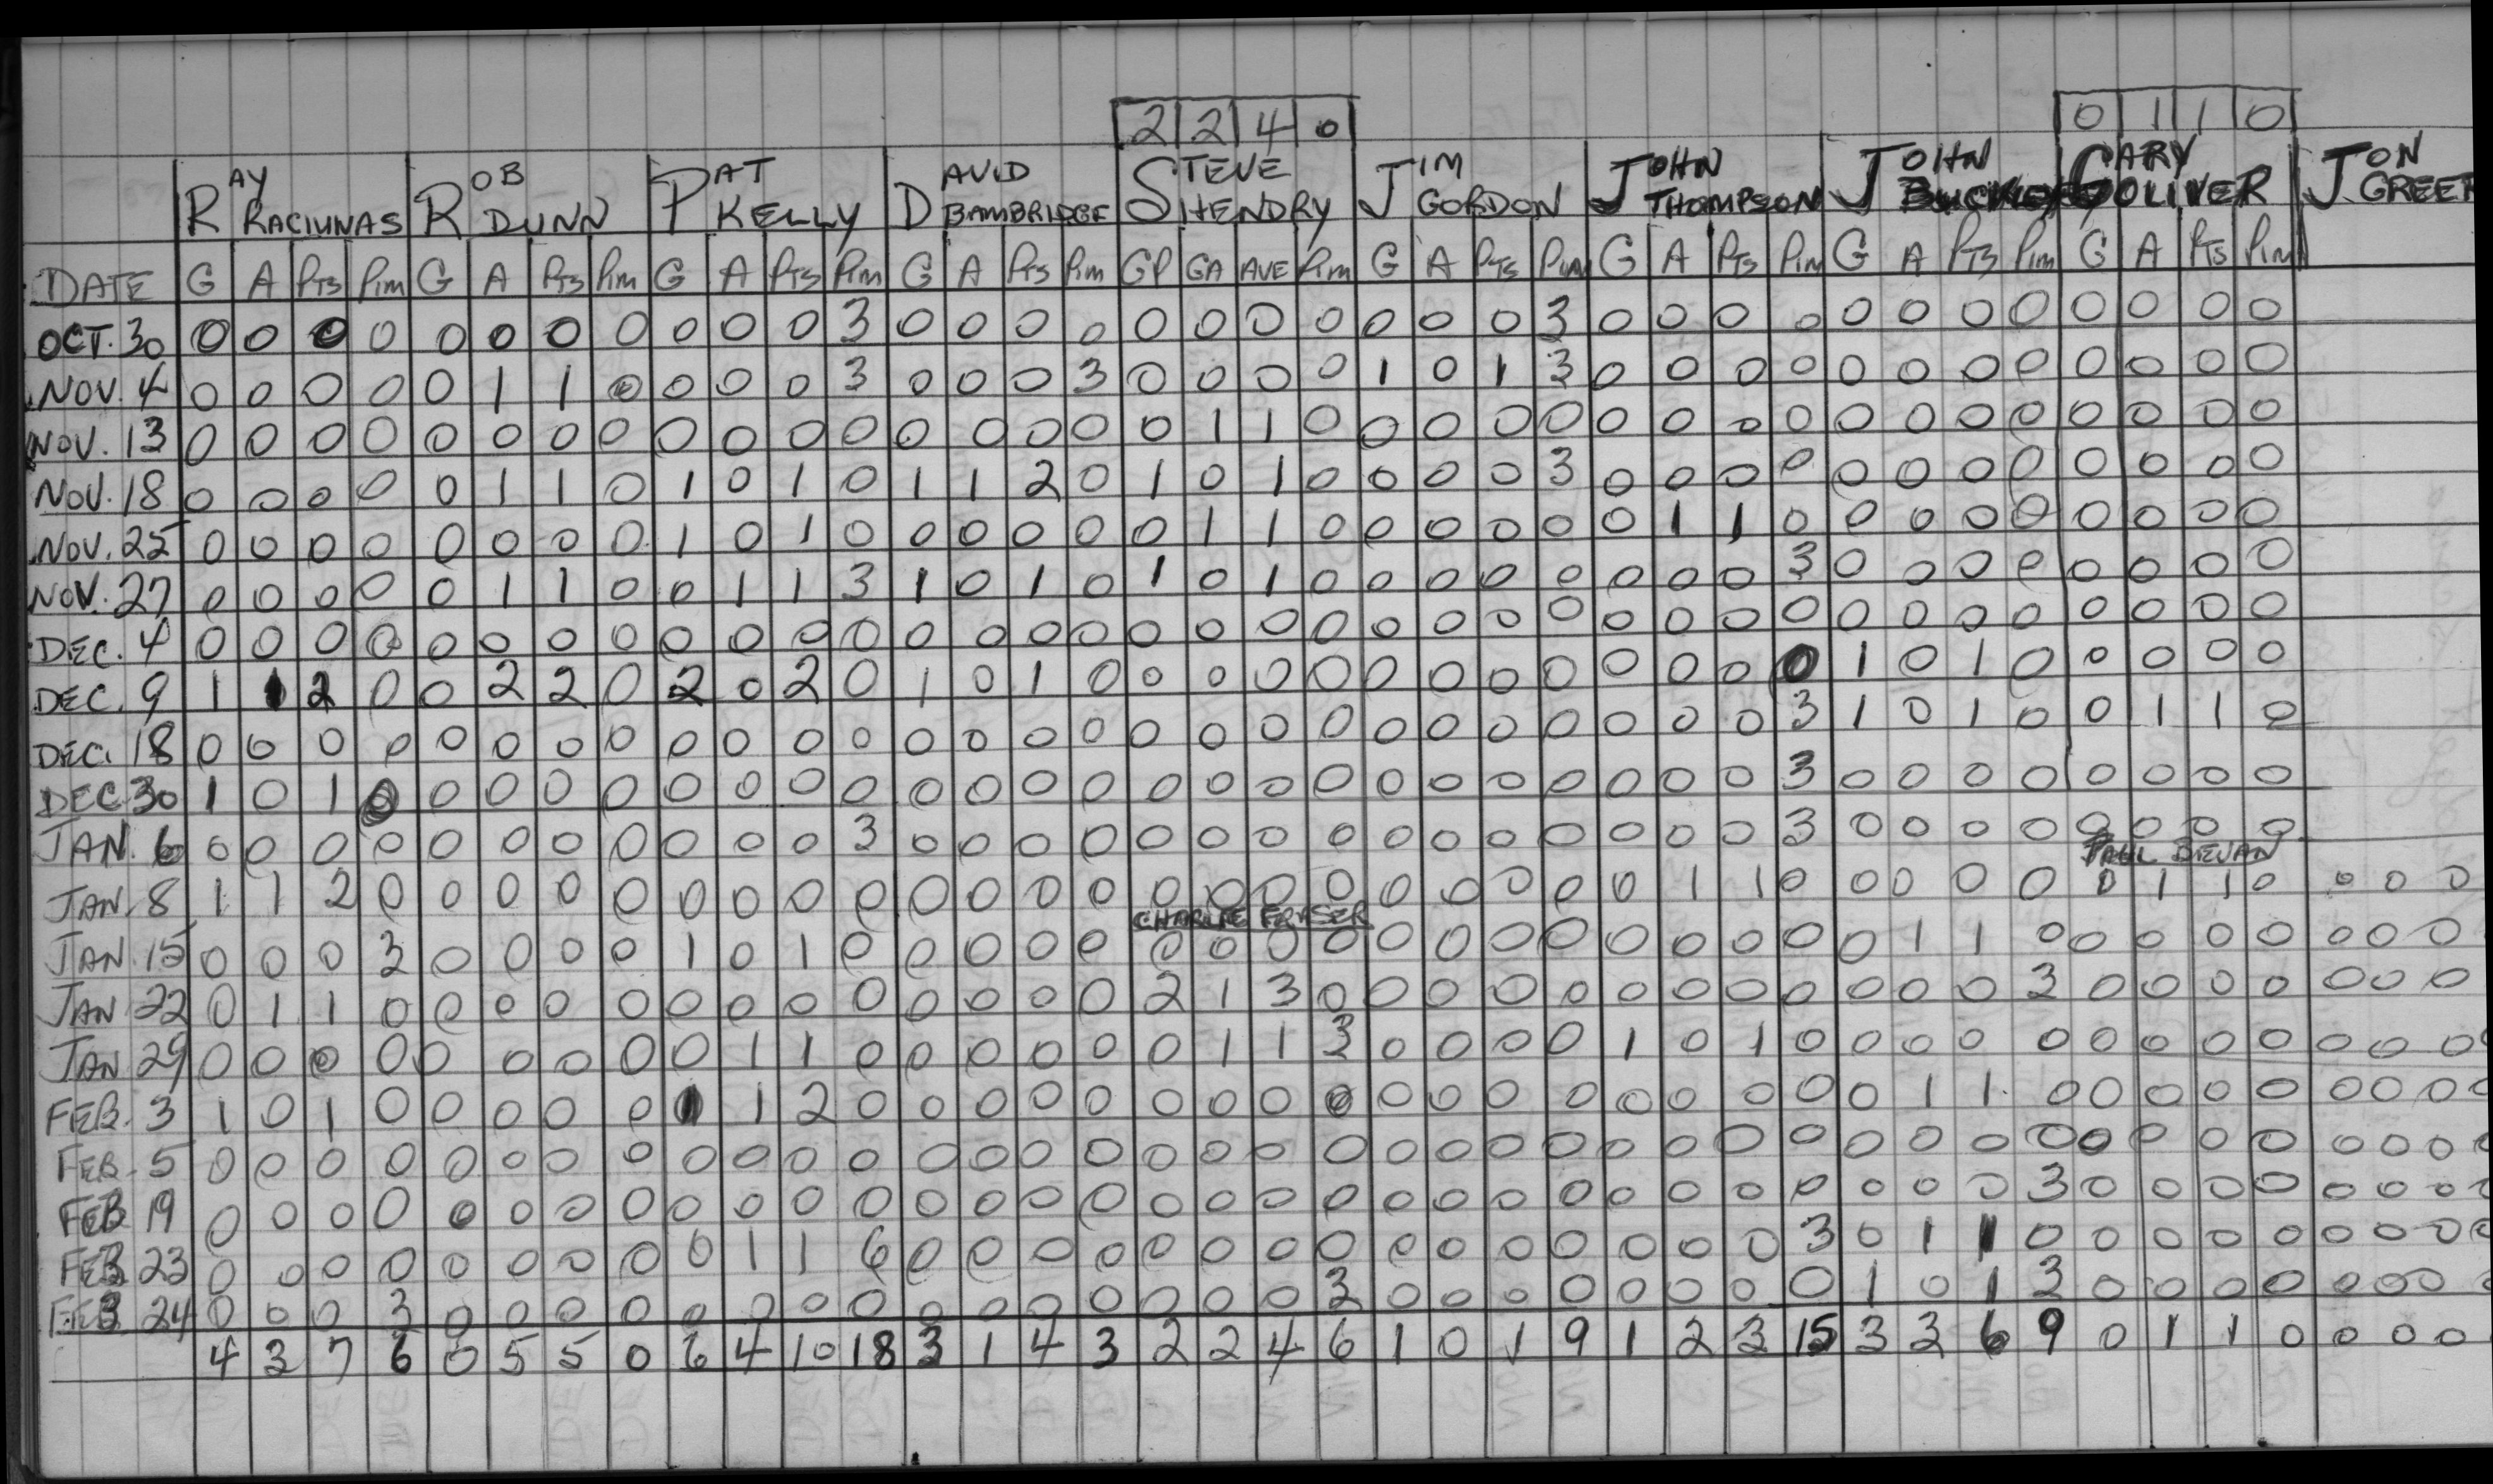 2 2 4 0 0 1 1 0
RAY ROB PAT DAVID STEVE JIM JOHN JOHN GARY JON
RACIUNAS DUNN KELLY BAMBRIDGE HENDRY GORDON THOMPSON OLIVER GREER
DATE G A PTS PIM G A PTS PIM G A PTS PIM G A PTS PIM GP GA AVE PIM G A PTS PIM G A PTS PIM G A PTS PIM G A PTS PIM
OCT. 30 0 0 0 0 0 0 0 0 0 0 0 3 0 0 0 0 0 0 0 0 0 0 0 3 0 0 0 0 0 0 0 0 0 0 0 0
NOV. 4 0 0 0 0 0 1 1 0 0 0 0 3 0 0 0 3 0 0 0 0 1 0 1 3 0 0 0 0 0 0 0 0 0 0 0 0
NOV. 13 0 0 0 0 0 0 0 0 0 0 0 0 0 0 0 0 0 1 1 0 0 0 0 0 0 0 0 0 0 0 0 0 0 0 0 0
NOV. 18 0 0 0 0 0 1 1 0 1 0 1 0 1 1 2 0 1 0 1 0 0 0 0 3 0 0 0 0 0 0 0 0 0 0 0 0
NOV. 25 0 0 0 0 0 0 0 0 1 0 1 0 0 0 0 0 0 1 1 0 0 0 0 0 0 1 1 0 0 0 0 0 0 0 0 0
NOV. 27 0 0 0 0 0 1 1 0 0 1 1 3 1 0 1 0 1 0 1 0 0 0 0 0 0 0 0 3 0 0 0 0 0 0 0 0
DEC. 4 0 0 0 0 0 0 0 0 0 0 0 0 0 0 0 0 0 0 0 0 0 0 0 0 0 0 0 0 0 0 0 0 0 0 0 0
DEC. 9 1 1 2 0 0 2 2 0 2 0 2 0 1 0 1 0 0 0 0 0 0 0 0 0 0 0 0 0 1 0 1 0 0 0 0 0
DEC. 18 0 0 0 0 0 0 0 0 0 0 0 0 0 0 0 0 0 0 0 0 0 0 0 0 0 0 0 3 1 0 1 0 0 1 1 0
DEC 30 1 0 1 0 0 0 0 0 0 0 0 0 0 0 0 0 0 0 0 0 0 0 0 0 0 0 0 3 0 0 0 0 0 0 0 0
JAN. 6 0 0 0 0 0 0 0 0 0 0 0 3 0 0 0 0 0 0 0 0 0 0 0 0 0 0 0 3 0 0 0 0 0 0 0 0
PAUL BEVAN
JAN. 8 1 1 2 0 0 0 0 0 0 0 0 0 0 0 0 0 0 0 0 0 0 0 0 0 0 1 1 0 0 0 0 0 0 1 1 0 0 0 0
CHARLIE FRASER
JAN. 15 0 0 0 3 0 0 0 0 1 0 1 0 0 0 0 0 0 0 0 0 0 0 0 0 0 0 0 0 0 1 1 0 0 0 0 0 0 0 0
JAN 22 0 1 1 0 0 0 0 0 0 0 0 0 0 0 0 0 2 1 3 0 0 0 0 0 0 0 0 0 0 0 0 3 0 0 0 0 0 0 0
JAN 29 0 0 0 0 0 0 0 0 0 1 1 0 0 0 0 0 0 1 1 3 0 0 0 0 1 0 1 0 0 0 0 0 0 0 0 0 0 0 0
FEB. 3 1 0 1 0 0 0 0 0 1 1 2 0 0 0 0 0 0 0 0 0 0 0 0 0 0 0 0 0 0 1 1 0 0 0 0 0 0 0 0 0
FEB. 5 0 0 0 0 0 0 0 0 0 0 0 0 0 0 0 0 0 0 0 0 0 0 0 0 0 0 0 0 0 0 0 0 0 0 0 0 0 0 0 0
FEB 19 0 0 0 0 0 0 0 0 0 0 0 0 0 0 0 0 0 0 0 0 0 0 0 0 0 0 0 0 0 0 0 3 0 0 0 0 0 0 0 0
FEB 23 0 0 0 0 0 0 0 0 0 1 1 6 0 0 0 0 0 0 0 0 0 0 0 0 0 0 0 3 0 1 1 0 0 0 0 0 0 0 0 0
FEB 24 0 0 0 3 0 0 0 0 0 0 0 0 0 0 0 0 0 0 0 3 0 0 0 0 0 0 0 0 1 0 1 3 0 0 0 0 0 0 0 0
4 3 7 6 0 5 5 0 6 4 10 18 3 1 4 3 2 2 4 6 1 0 1 9 1 2 3 15 3 3 6 9 0 1 1 0 0 0 0